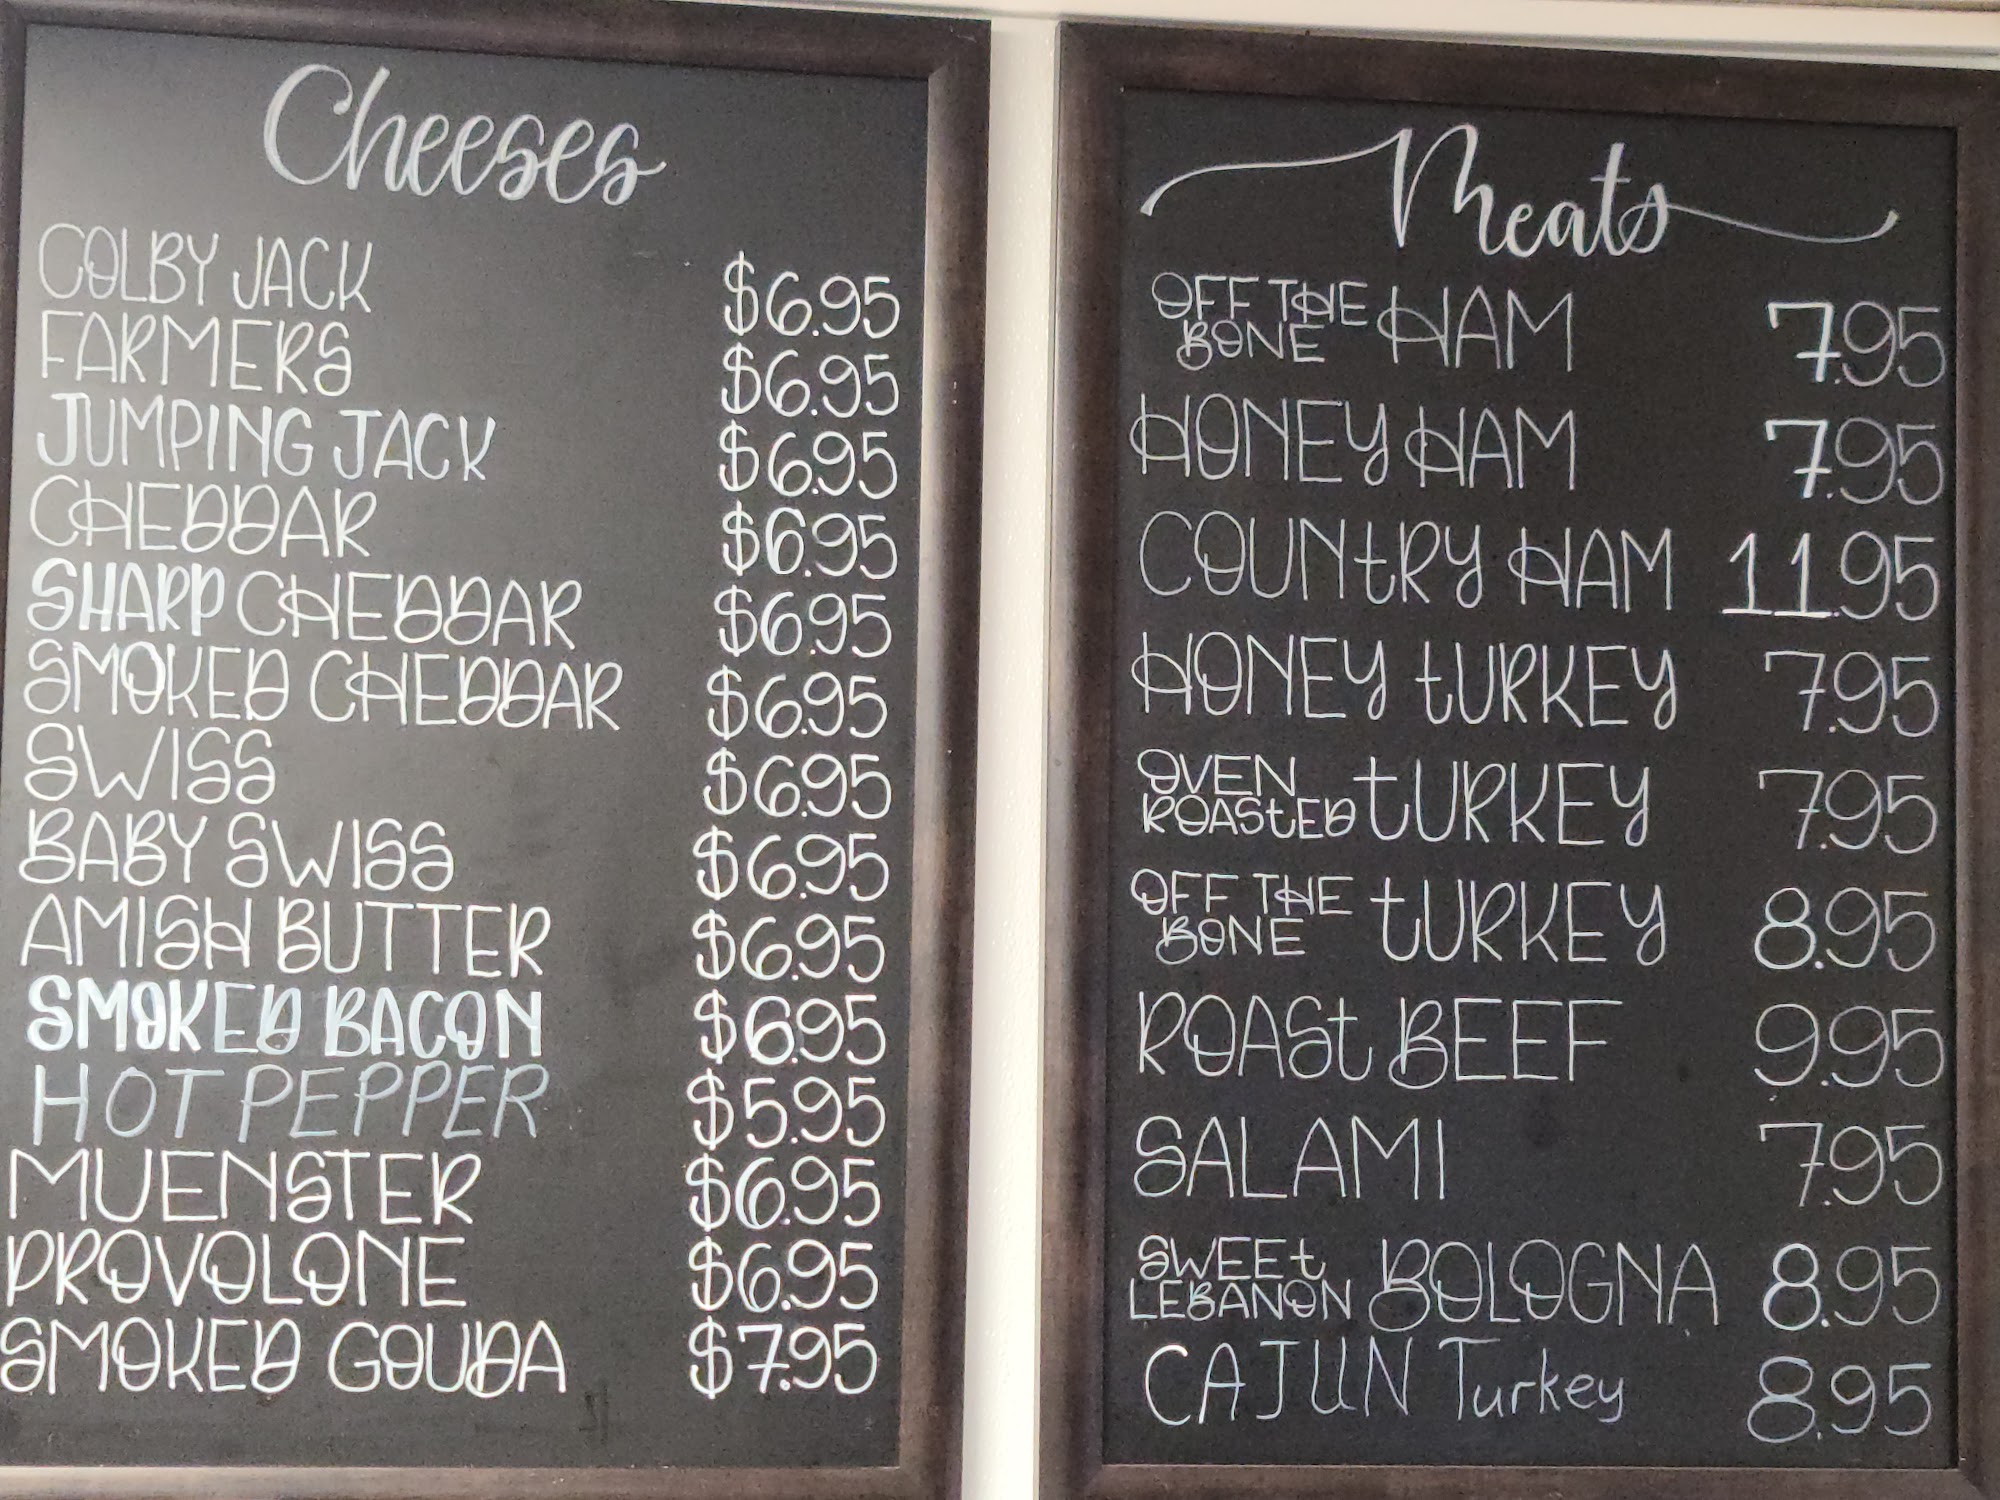 Cheeses
COLBY JACK $6.95
FARMERS $6.95
JUMPING JACK $6.95
CHEDDAR $6.95
SHARP CHEDDAR $6.95
SMOKED CHEDDAR $6.95
SWISS $6.95
BABY SWISS $6.95
AMISH BUTTER $6.95
SMOKED BACON $6.95
HOT PEPPER $5.95
MUENSTER $6.95
PROVOLONE $6.95
SMOKED GOUDA $7.95
Meats
OFF THE BONE HAM 7.95
HONEY HAM 7.95
COUNtRY HAM 11.95
HONEY tURKEY 7.95
OVEN ROAStED tURKEY 7.95
OFF THE BONE tURKEY 8.95
ROASt BEEF 9.95
SALAMI 7.95
SWEEt LEBANON BOLOGNA 8.95
CAJUN Turkey 8.95